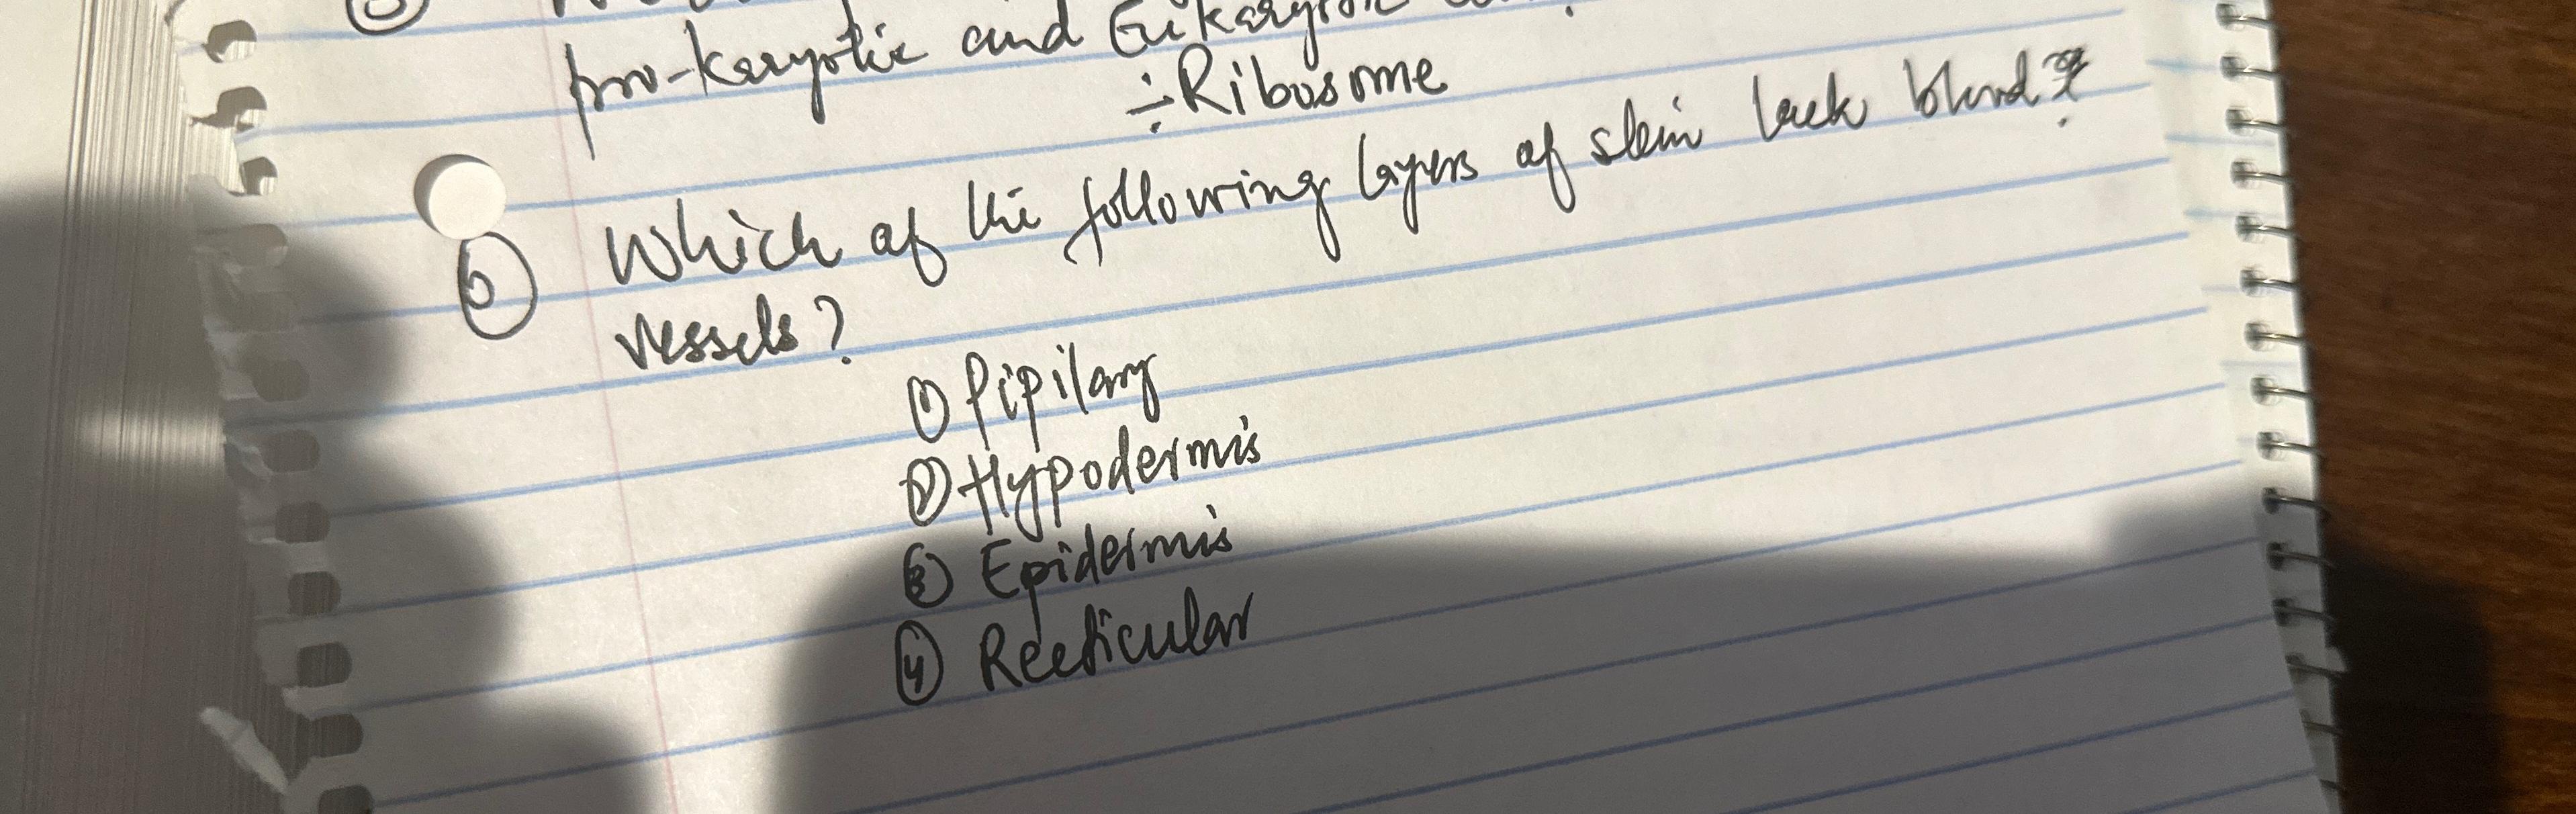 pro-karyotic and Eukaryotic
÷ Ribosome
⑥ Which of the following layers of skin lack blood
vessels?
① Pipilary
② Hypodermis
③ Epidermis
④ Reeticular